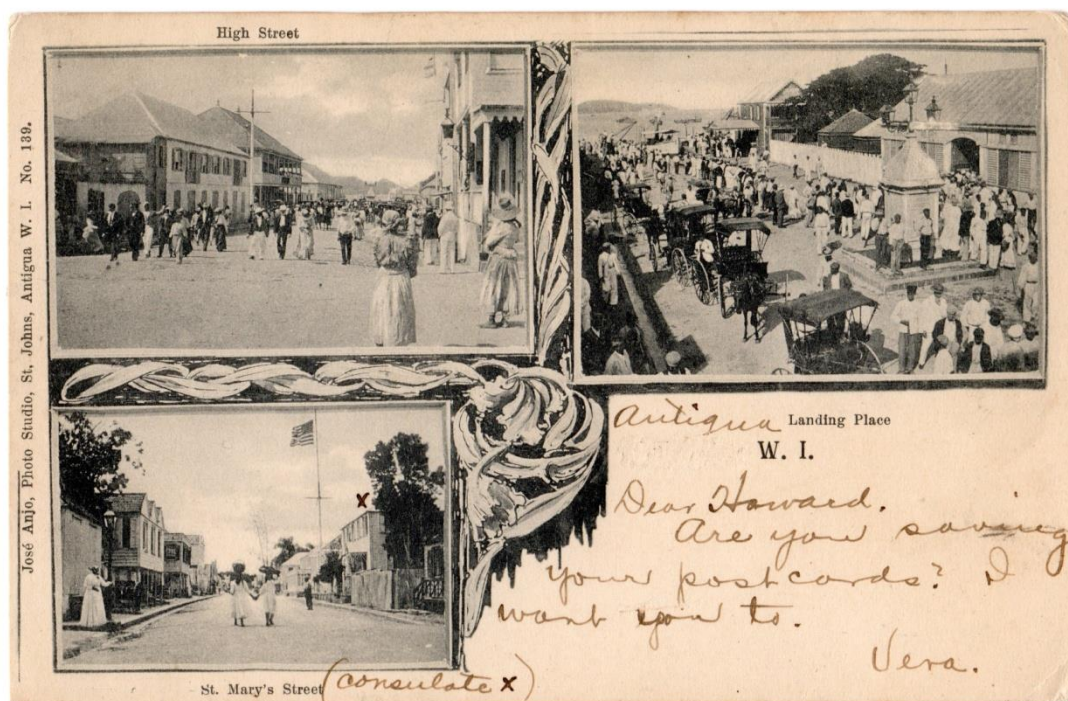 High Street
José Anjo, Photo Studio, St. Johns, Antigua W. I. No. 139.
Antigua Landing Place
W. I.
Dear Howard.
Are you saving
your postcards? I
want you to.
Vera.
x
St. Mary's Street (consulate x)